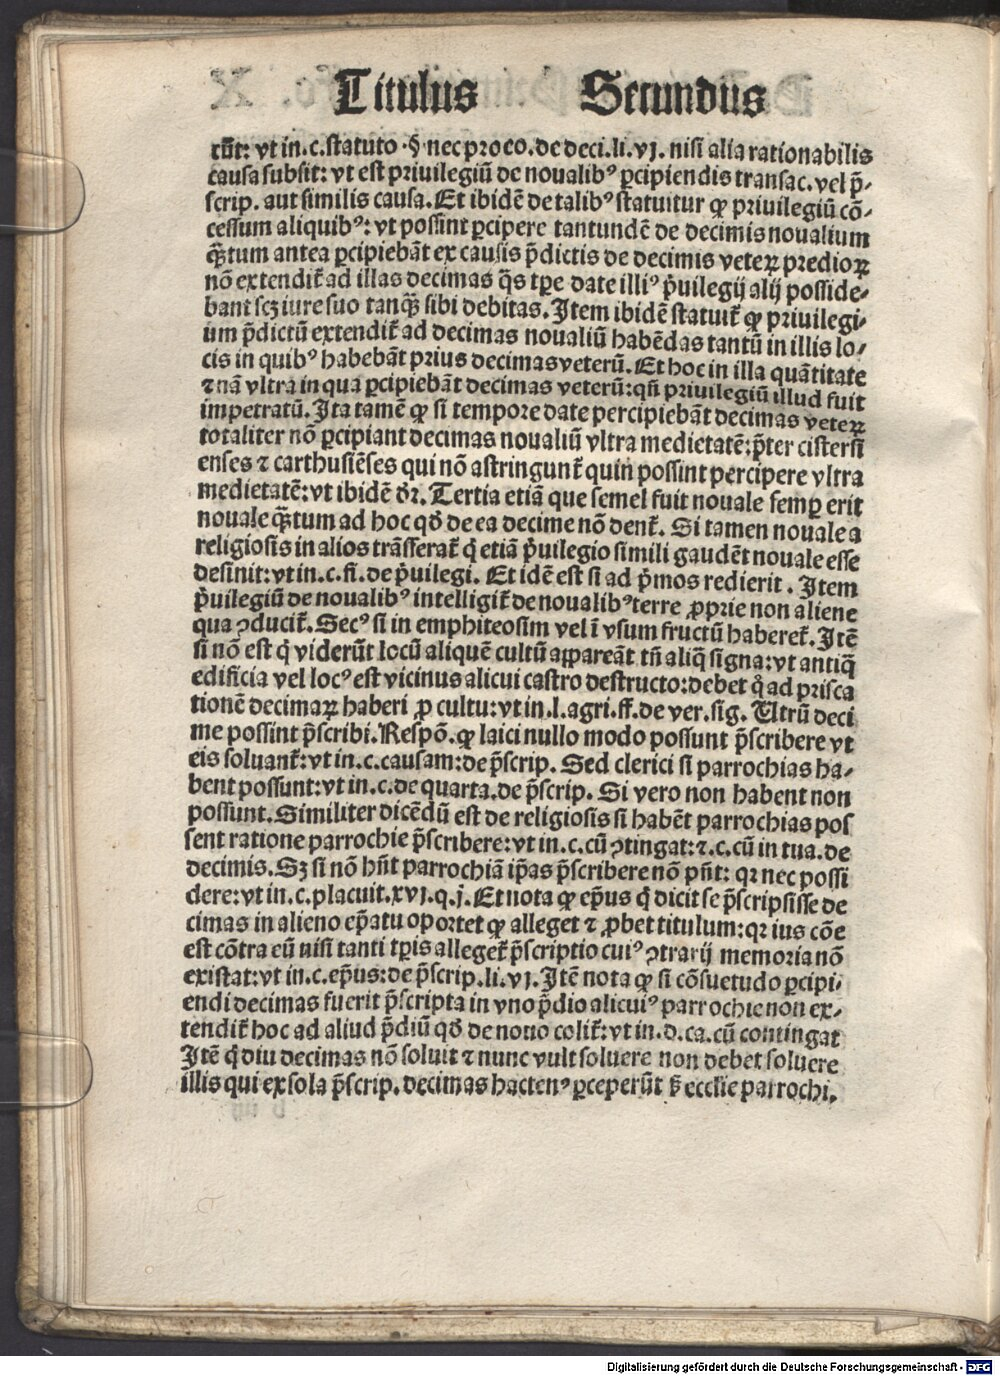 Titulus Secundus
rũt: vt in.c.statuto.§.nec pro eo.de deci.li.vj. nisi alia rationabilis
causa subsit: vt est priuilegiũ de noualibꝰ ꝑcipiendis transac. vel p̃-
scrip. aut similis causa. Et ibidẽ de talibꝰ statuitur ꝙ priuilegiũ cõ-
cessum aliquibꝰ: vt possint ꝑcipere tantundẽ de decimis noualium
q̃tum antea ꝑcipiebãt ex causis p̃dictis de decimis veteꝝ predioꝝ
nõ extendit̃ ad illas decimas q̃s tꝑe date illiꝰ p̃uilegij alij posside-
bant scꝫ iure suo tanq̃ sibi debitas. Item ibidẽ statuit̃ ꝙ priuilegi-
um p̃dictũ extendit̃ ad decimas noualiũ habẽdas tantũ in illis lo-
cis in quibꝰ habebãt prius decimas veterũ. Et hoc in illa quãtitate
⁊ nã vltra in qua ꝑcipiebãt decimas veterũ: qñ priuilegiũ illud fuit
impetratũ. Ita tamẽ ꝙ si tempore date percipiebãt decimas veteꝝ
totaliter nõ ꝑcipiant decimas noualiũ vltra medietatẽ: p̃ter cistersi
enses ⁊ carthusiẽses qui nõ astringunt̃ quin possint percipere vltra
medietatẽ: vt ibidẽ dr̃. Tertia etiã que semel fuit nouale semꝑ erit
nouale q̃tum ad hoc qđ de ea decime nõ dent̃. Si tamen nouale a
religiosis in alios trãsferat̃ q̃ etiã p̃uilegio simili gaudẽt nouale esse
desinit: vt in.c.fi.de p̃uilegi. Et idẽ est si ad p̃mos redierit. Item
p̃uilegiũ de noualibꝰ intelligit̃ de noualibꝰ terre ꝓprie non aliene
qua ꝯducit̃. Secꝰ si in emphiteosim vel ĩ vsum fructũ haberet̃. Itẽ
si nõ est q̃ viderũt locũ aliquẽ cultũ appareãt tñ aliq̃ signa: vt antiq̃
edificia vel locꝰ est vicinus alicui castro destructo: debet q̃ ad prisca
tionẽ decimaꝝ haberi ꝓ cultu: vt in.l.agri.ff.de ver.sig. Utrũ deci
me possint p̃scribi. Respõ. ꝙ laici nullo modo possunt p̃scribere vt
eis soluant̃: vt in.c.causam: de p̃scrip. Sed clerici si parrochias ha-
bent possunt: vt in.c.de quarta.de p̃scrip. Si vero non habent non
possunt. Similiter dicẽdũ est de religiosis si habẽt parrochias pos
sent ratione parrochie p̃scribere: vt in.c.cũ ꝯtingat: ⁊.c.cũ in tua.de
decimis. Sꝫ si nõ hñt parrochiã ip̃as p̃scribere nõ pñt: qꝛ nec possi
dere: vt in.c.placuit.xvj.q.j. Et nota ꝙ ep̃us q̃ dicit se p̃scripsisse de
cimas in alieno ep̃atu oportet ꝙ alleget ⁊ ꝓbet titulum: qꝛ ius cõe
est cõtra eũ nisi tanti tꝑis alleget̃ p̃scriptio cuiꝰ ꝯtrarij memoria nõ
existat: vt in.c.ep̃us: de p̃scrip.li.vj. Itẽ nota ꝙ si cõsuetudo ꝑcipi-
endi decimas fuerit p̃scripta in vno p̃dio alicuiꝰ parrochie non ex-
tendit̃ hoc ad aliud p̃diũ qđ de nouo colit̃: vt in.d.ca.cũ contingat
Itẽ q̃ diu decimas nõ soluit ⁊ nunc vult soluere non debet soluere
illis qui ex sola p̃scrip. decimas hactenꝰ ꝑceperũt sꝫ ecclie parrochi.
Digitalisierung gefördert durch die Deutsche Forschungsgemeinschaft - DFG